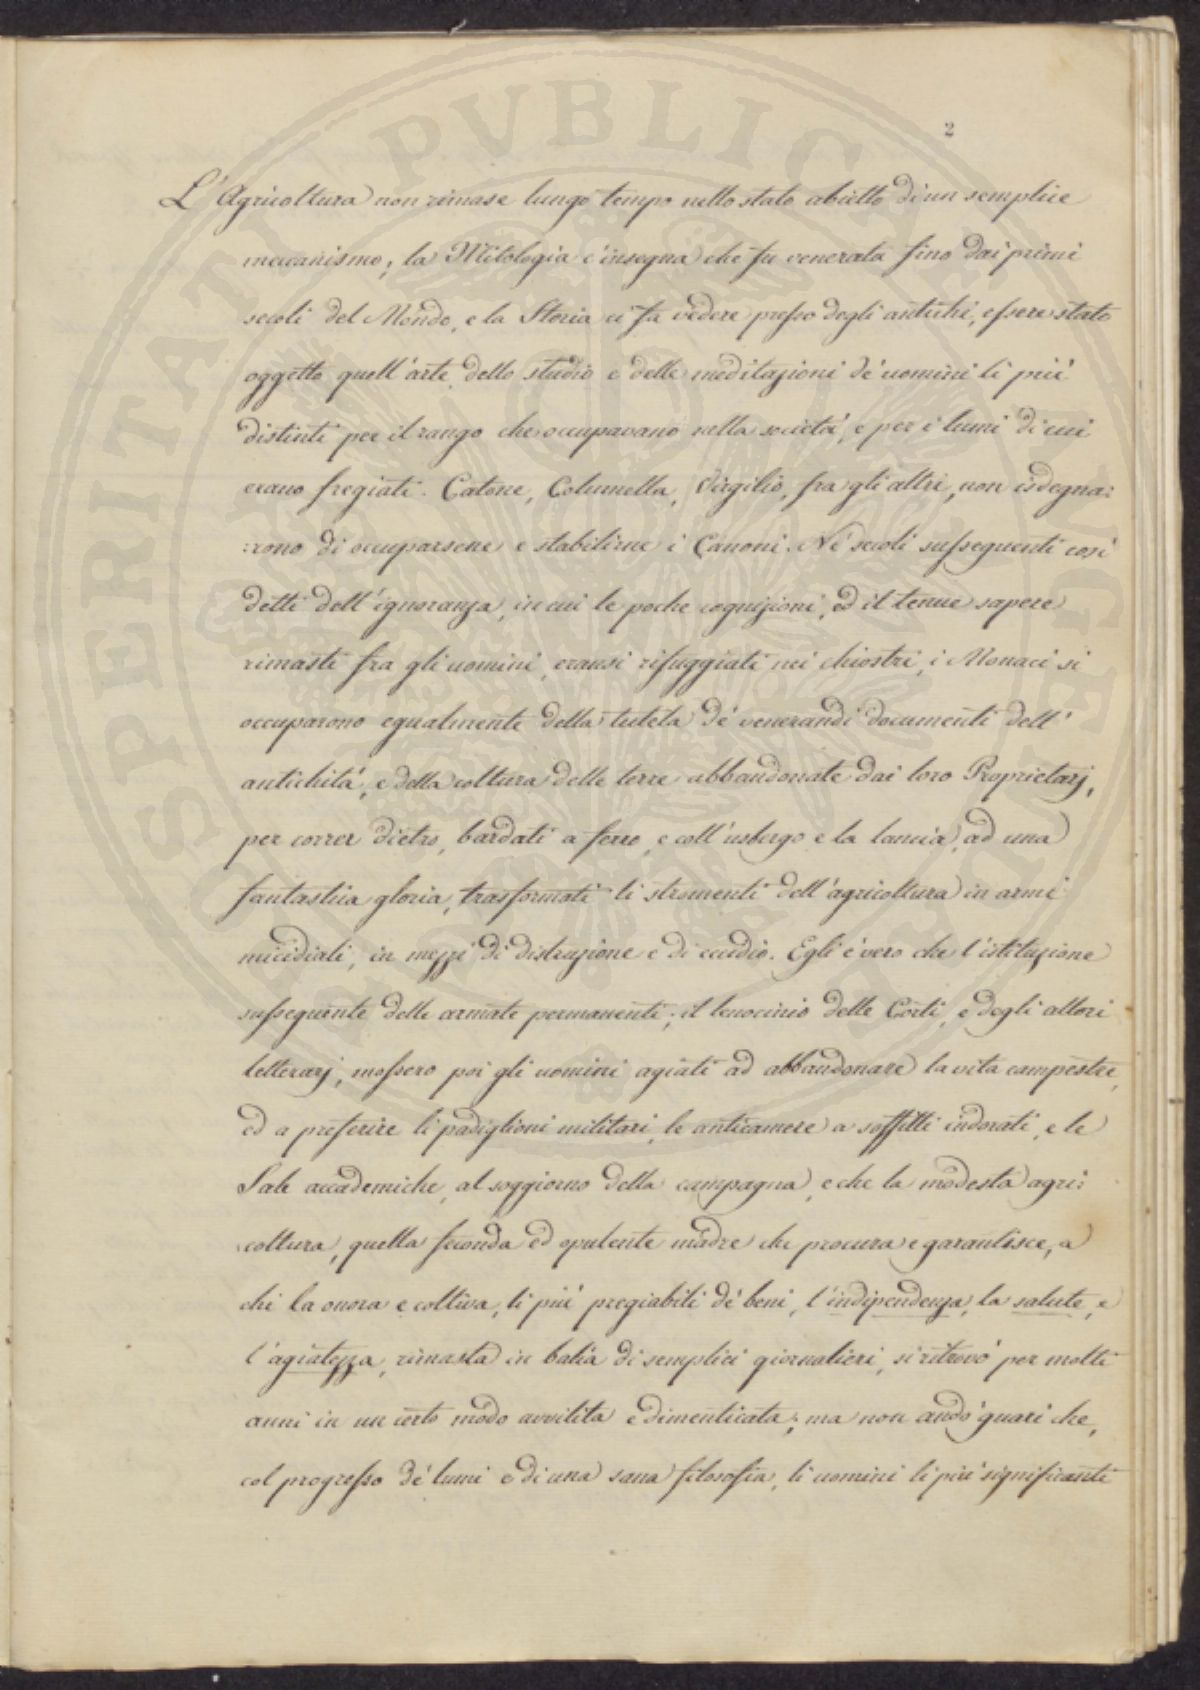 2
L'Agricoltura non rimase lungo tempo nello stato abietto di un semplice
meccanismo; la Mitologia c'insegna che fu venerata fino dai primi
secoli del Mondo, e la Storia ci fa vedere presso degli antichi, essere stato
oggetto quell'arte, dello studio e delle meditazioni de' uomini li più
distinti per il rango che occupavano nella società, e per i lumi di cui
erano fregiati. Catone, Columella, Virgilio, fra gli altri, non isdegna:
:rono di occuparsene e stabilirne i Canoni. Ne' secoli susseguenti così
detti dell'ignoranza, in cui le poche cognizioni, ed il tenue sapere
rimasti fra gli uomini, eransi rifuggiati nei chiostri, i Monaci si
occuparono egualmente della tutela de' venerandi documenti dell'
antichità, e della coltura delle terre abbandonate dai loro Proprietarj,
per correr dietro, bardati a ferro, e coll'usbergo e la lancia, ad una
fantastica gloria, trasformati li stromenti dell'agricoltura in armi
micidiali, in mezzi di distruzione e di eccidio. Egli è vero che l'istituzione
susseguente delle armate permanenti; il lenocinio delle Corti, e degli allori
letterarj, mossero poi gli uomini agiati ad abbandonare la vita campestre,
ed a preferire li padiglioni militari, le anticamere a soffitti indorati, e le
Sale accademiche, al soggiorno della campagna, e che la modesta agri:
coltura, quella feconda ed opulente madre che procura e garantisce, a
chi la onora e coltiva, li più pregiabili de' beni, l'indipendenza, la salute, e
l'agiatezza, rimasta in balìa di semplici giornalieri, si ritrovò per molti
anni in un certo modo avvilita e dimenticata; ma non andò guari che,
col progresso de' lumi e di una sana filosofia, li uomini li più significanti
PROSPERITATI PVBLICAE AVGENDAE